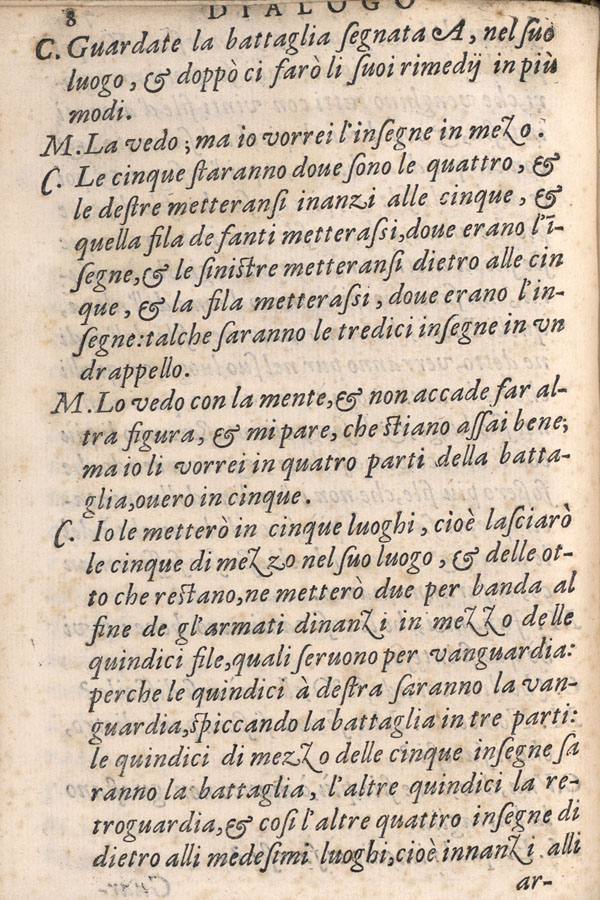 8 DIALOGO
C. Guardate la battaglia ſegnata A, nel ſuo
luogo, & doppò ci farò li ſuoi rimedij in più
modi.
M. La vedo ; ma io vorrei l'inſegne in mezo.
C. Le cinque ſtaranno doue ſono le quattro, &
le deſtre metteranſi inanzi alle cinque, &
quella fila de fanti metteraſſi, doue erano l'ī-
ſegne, & le ſiniſtre metteranſi dietro alle cin
que, & la fila metteraſſi, doue erano l'in-
ſegne: talche ſaranno le tredici inſegne in vn
drappello.
M. Lo vedo con la mente, & non accade far al-
tra figura, & mi pare, che ſtiano aſſai bene;
ma io li vorrei in quatro parti della batta-
glia, ouero in cinque.
C. Io le metterò in cinque luoghi, cioè laſciarò
le cinque di mezzo nel ſuo luogo, & delle ot-
to che reſtano, ne metterò due per banda al
fine de gl'armati dinanzi in mezzo delle
quindici file, quali ſeruono per vanguardia:
perche le quindici à deſtra ſaranno la van-
guardia, ſpiccando la battaglia in tre parti:
le quindici di mezzo delle cinque inſegne ſa
ranno la battaglia, l'altre quindici la re-
troguardia, & coſi l'altre quattro inſegne di
dietro alli medeſimi luoghi, cioè innanzi alli
ar-